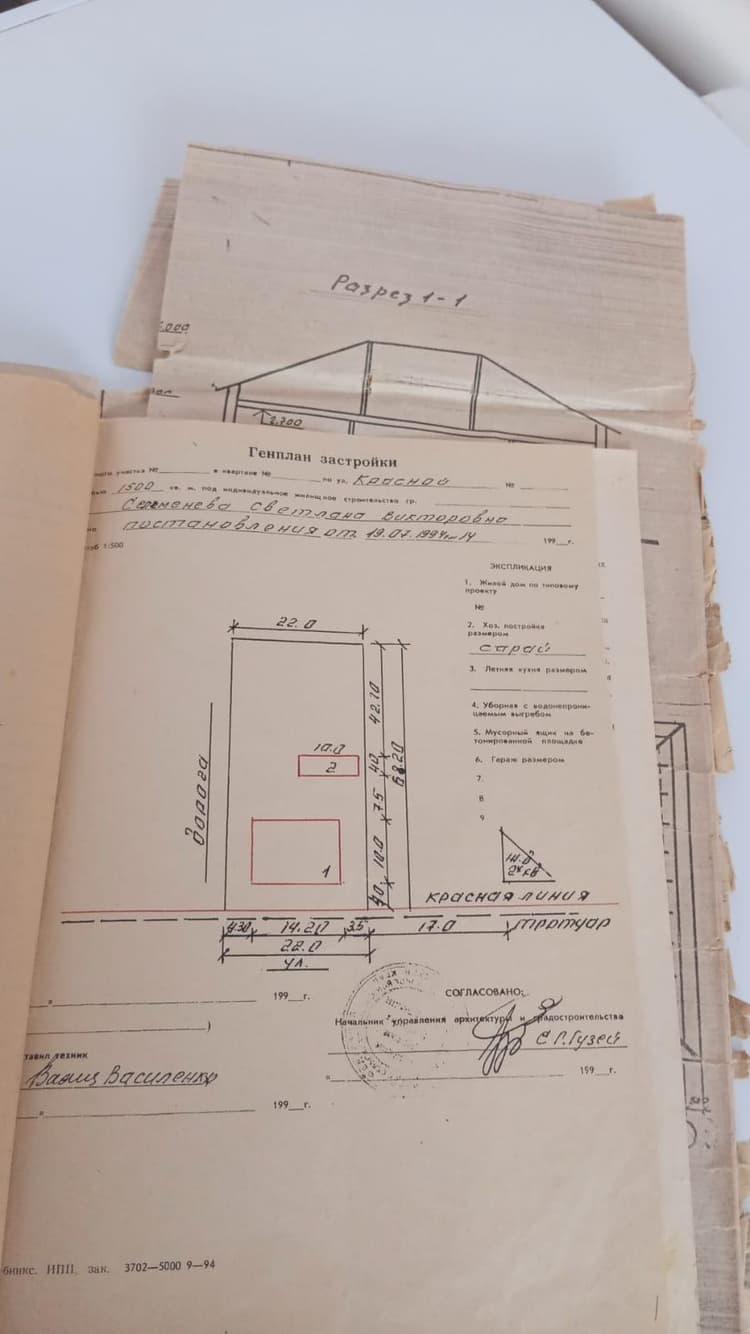 Разрез 1-1
2.700
Генплан застройки
участка № в квартале № по ул. Красной №
1500 кв. м. под индивидуальное жилищное строительство гр.
Светлана Викторовна
постановления от 19.07.1994 г. 199 г.
1:500
ЭКСПЛИКАЦИЯ
1. Жилой дом по типовому
проекту
№
2. Хоз. постройка
размером
сарай
3. Летняя кухня размером
4. Уборная с водонепрони-
цаемым выгребом
5. Мусорный ящик на бе-
тонированной площадке
6. Гараж размером
7.
8
9
22.0
42.70
10.0
2
4.0
68.20
7.5
Дорога
10.0
1
4.0
красная линия
4.30 14.20 3.5 17.0 тротуар
22.0
ул.
" 199 г.
СОГЛАСОВАНО:
)
Начальник управления архитектуры и градостроительства
Е.Г.Гузей
техник
Василенко
" 199 г.
" 199 г.
ИПП, зак. 3702—5000 9—94